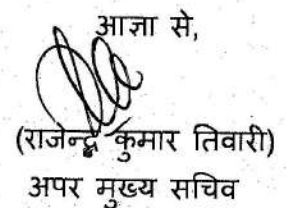 आज्ञा से,
(राजेन्द्र कुमार तिवारी)
अपर मुख्य सचिव